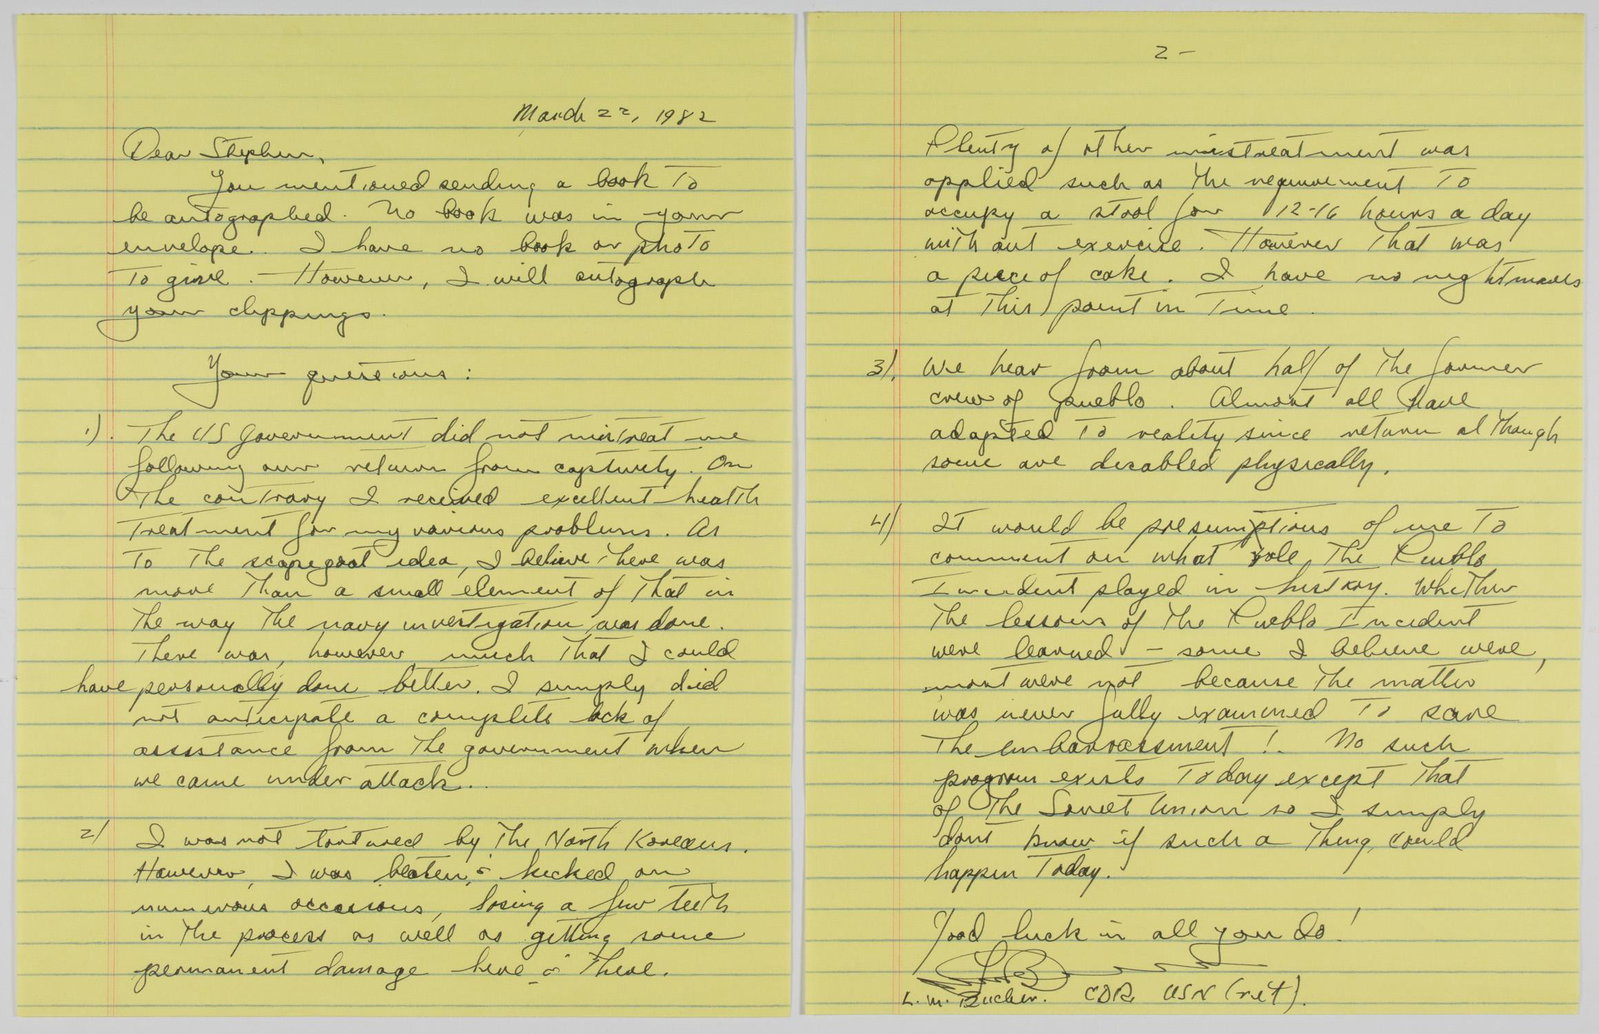 March 22, 1982
Dear Stephen,
You mentioned sending a book to
be autographed. No book was in your
envelope. I have no book or photo
to give. However, I will autograph
your clippings.
Your questions:
1). The US government did not mistreat me
following our return from captivity. On
the contrary I received excellent health
treatment for my various problems. As
to the scapegoat idea, I believe there was
more than a small element of that in
the way the navy investigation was done.
There was, however much that I could
have personally done better. I simply did
not anticipate a complete lack of
assistance from the government when
we came under attack..
2) I was not tortured by the North Koreans.
However, I was beaten & kicked on
numerous occasions, losing a few teeth
in the process as well as getting some
permanent damage here & there.
2-
Plenty of other mistreatment was
applied such as the requirement to
occupy a stool for 12-16 hours a day
without exercise. However that was
a piece of cake. I have no nightmares
at this point in time.
3). We hear from about half of the former
crew of Pueblo. Almost all have
adapted to reality since return although
some are disabled physically.
4) It would be presumptions of me to
comment on what role the Pueblo
Incident played in history. Whether
the lessons of the Pueblo Incident
were learned - some I believe were,
most were not because the matter
was never fully examined to save
the embarrassment! No such
program exists today except that
of the Soviet Union so I simply
dont know if such a thing could
happen today.
Good luck in all you do!
L. M. Bucher. CDR USN (ret).